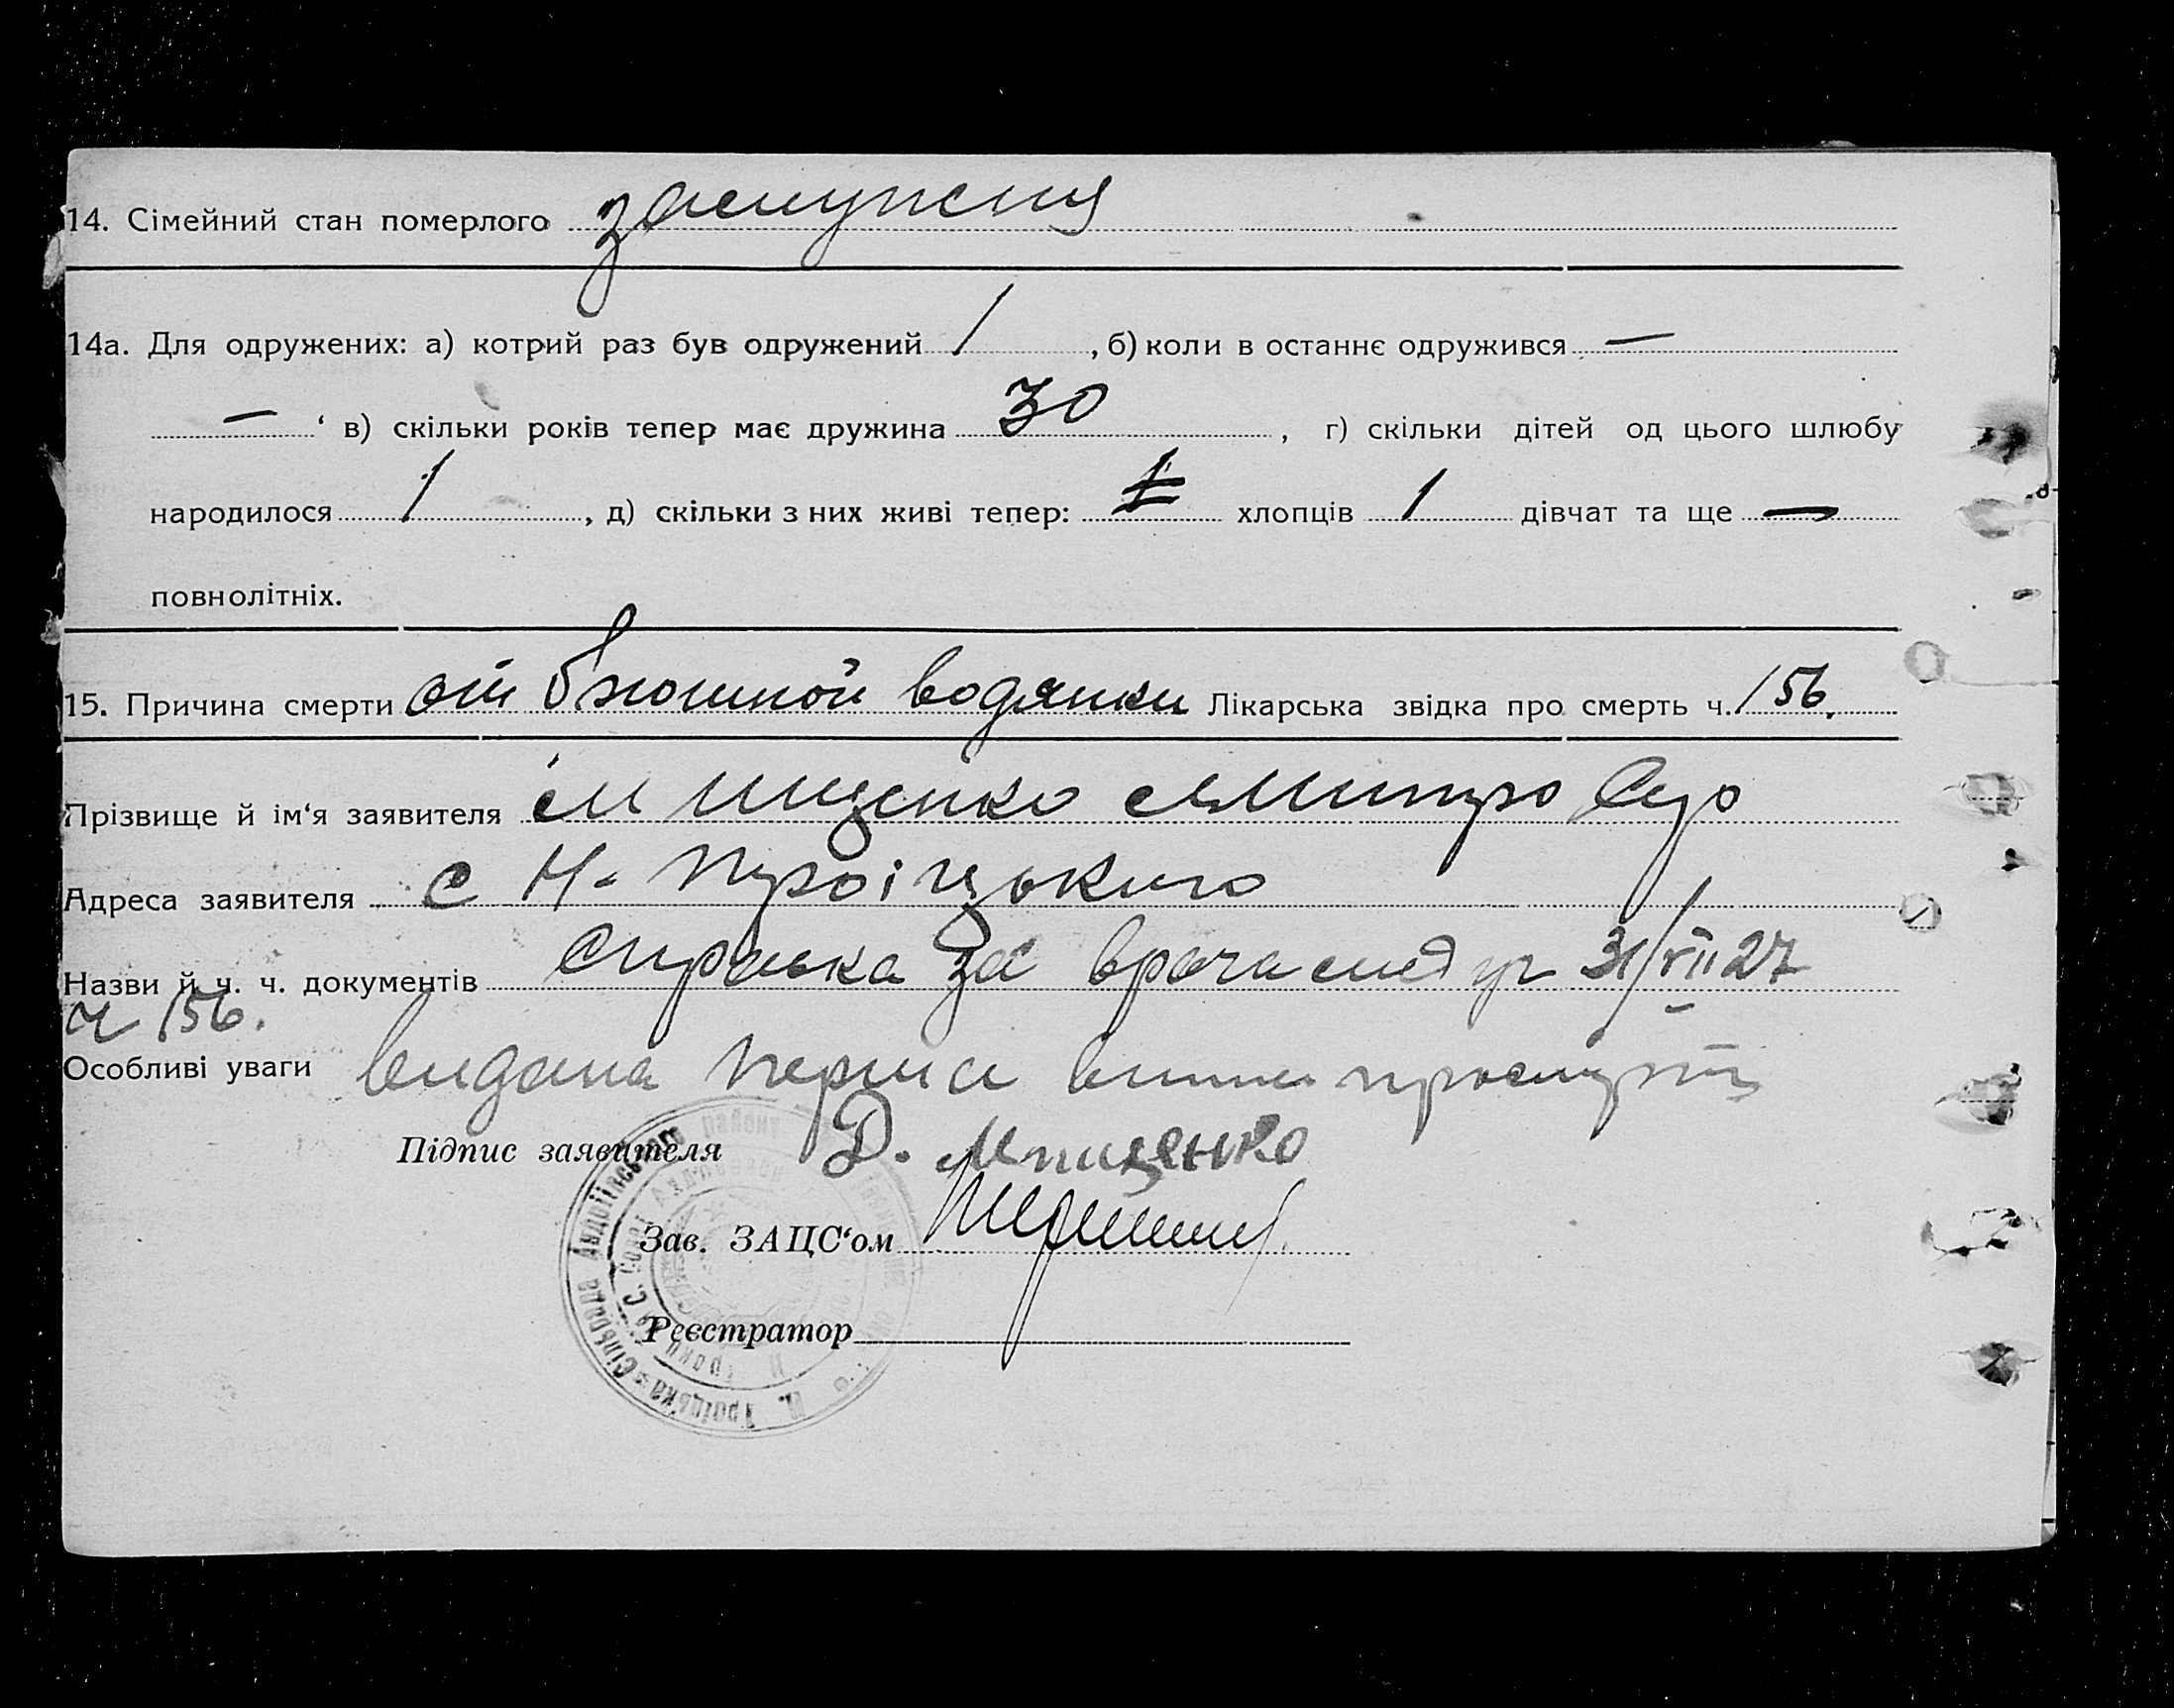 14. Сімейний стан померлого замужня
14а. Для одружених: а) котрий раз був одружений 1 , б) коли в останнє одружився —
— ‘ в) скільки років тепер має дружина 30 , г) скільки дітей од цього шлюбу
народилося 1 , д) скільки з них живі тепер: 1 хлопців 1 дівчат та ще —
повнолітніх.
15. Причина смерти от брюшной водянки Лікарська звідка про смерть ч. 156.
Прізвище й ім‘я заявителя Мищенко Дмитро
Адреса заявителя с Н- Троіцького
Назви й ч. ч. документів Справка за врача 31/VII 27
ч 156.
Особливі уваги видана
Підпис заявителя Д. Мищенко
Зав. ЗАЦС‘ом
Реєстратор
Н. Троіцька Сільрада Авдотіівського району